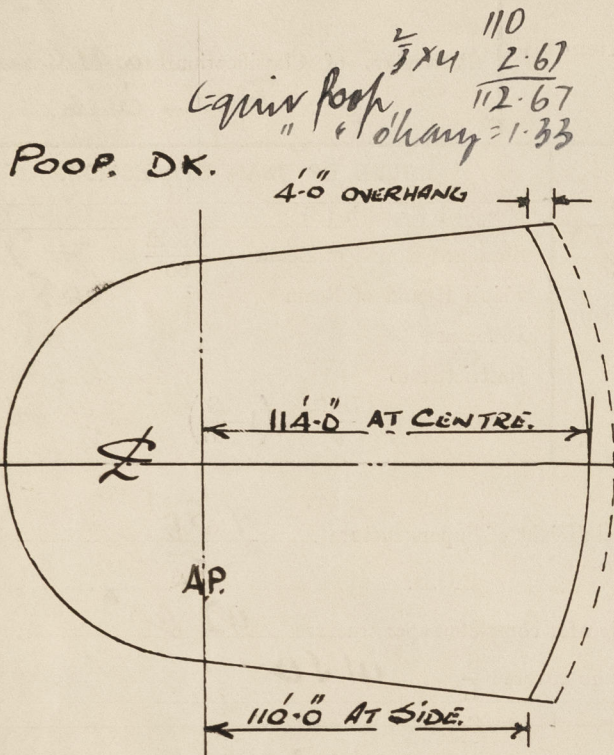 110
2/3 x 4 2.67
Equiv Poop 112.67
" " o'hang = 1.33
POOP. DK.
4'-0" OVERHANG
114'-0" AT CENTRE.
℄
A.P.
110'-0" AT SIDE.